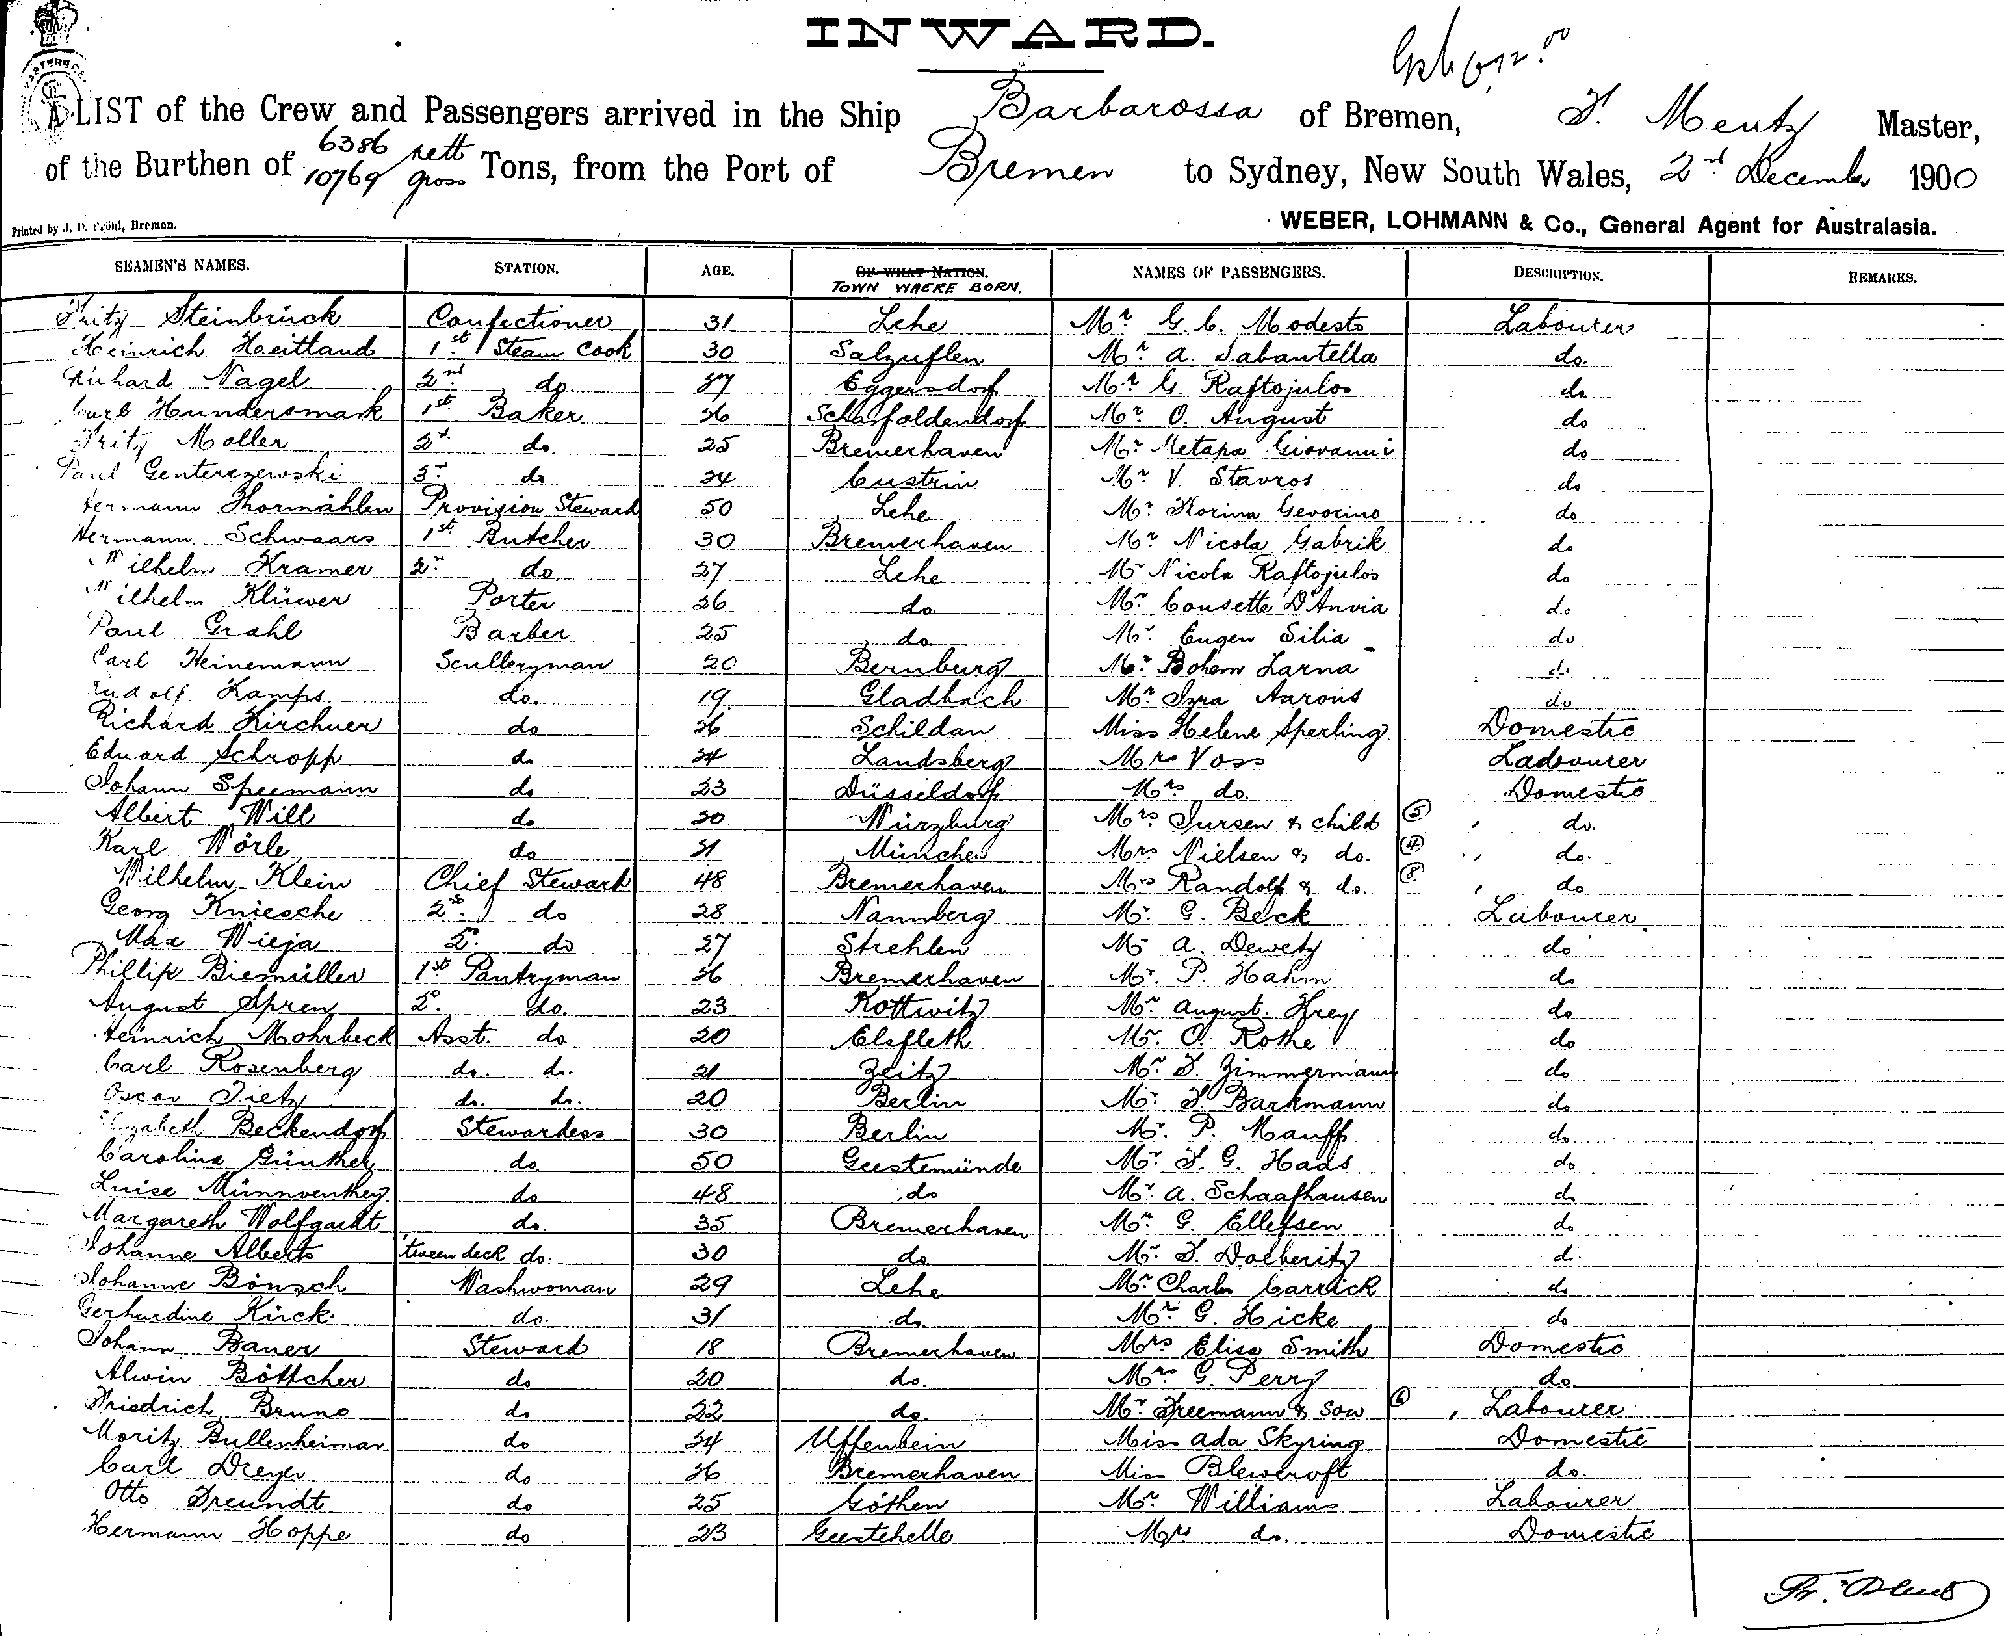 INWARD.
A LIST of the Crew and Passengers arrived in the Ship Barbarossa of Bremen, F. Mentz Master,
of the Burthen of 6386 nett 10769 gross Tons, from the Port of Bremen to Sydney, New South Wales, 2nd December 1900
Printed by J. D. Bremen. WEBER, LOHMANN & Co., General Agent for Australasia.
SEAMEN'S NAMES. STATION. AGE. OF WHAT NATION. TOWN WHERE BORN. NAMES OF PASSENGERS. DESCRIPTION. REMARKS.
Fritz Steinbrück Confectioner 31 Lehe Mr G. C. Modesto Labourer
Heinrich Heitland 1st Steam Cook 30 Salzuflen Mr A. Sabantella do.
Richard Nagel 2nd do. 27 Eggersdorf Mr G Raftojulos do
Carl Hundersmark 1st Baker 26 Scharfoldendorf Mr O. August do
Fritz Moller 2d do. 25 Bremerhaven Mr Metapa Giovanni do
Paul Genterczewski 3r do 24 Custrin Mr V. Stavros do
Hermann Thormählen Provision Steward 50 Lehe Mr Florina Gevorino do
Hermann Schwaars 1st Butcher 30 Bremerhaven Mr Nicola Gabrik do
Wilhelm Kramer 2n do 27 Lehe Mr Nicola Raftojulos do
Wilhelm Klüwer Porter 26 do Mr Cousette D'Anvia do
Paul Grahl Barber 25 do Mr. Eugen Silia do
Carl Heinemann Sculleryman 20 Bernburg Mr Bohem Larna do
Rudolf Kamps do. 19 Gladbach Mr Izra Aarons do
Richard Kirchner do 26 Schildau Miss Helene Sperling Domestic
Eduard Schropp do 24 Landsberg Mr Voss Labourer
Johann Speemann do 23 Düsseldorf Mrs do. Domestic
Albert Will do 20 Würzburg Mrs Jursen & child 5 do.
Karl Wörle do 21 München Mrs Nielsen & do. 4 do.
Wilhelm Klein Chief Steward 48 Bremerhaven Mrs Randolf & do. 8 do
Georg Kniesche 2d do 28 Naumberg Mr. G. Beck Labourer
Max Wieja 2. do 27 Strehlen Mr A. Dewetz do
Phillip Biemüller 1st Pantryman 26 Bremerhaven Mr. P. Hahm do
August Spren 2. do. 23 Kottwitz Mr August Frey do
Heinrich Mohrbeck Asst. do. 20 Elsfleth Mr. O. Rothe do
Carl Rosenberg do. do. 21 Zeitz Mr. F. Zimmermann do
Oscar Tietz do. do. 20 Berlin Mr. F. Barkmann do
Elizabeth Beckendorf Stewardess 30 Berlin Mr. P. Nauff do
Carolina Günther do 50 Geestemünde Mr. F. G. Haas do
Luise Münnventhey do 48 do Mr. A. Schaafhausen do
Margareth Wolfgardt do. 35 Bremerhaven Mr. G. Ellefsen do
Johanne Alberts 'tween deck do. 30 do Mr. F. Dolberitz d.
Johanne Bönsch Washwoman 29 Lehe Mr Charles Carrick do
Gerhardine Kück do. 31 do. Mr. G. Hicke do
Johann Bauer Steward 18 Bremerhaven Mrs Elise Smith Domestic
Alwin Böttcher do 20 do. Mrs G. Perry do.
Friedrich Bruno do 22 do. Mr Freemann & Son 6 Labourer
Moritz Bullenheimar do 24 Uffenhein Miss Ada Skyring Domestic
Carl Dreyer do 26 Bremerhaven Miss Blewcroft do.
Otto Freundt do 25 Göthen Mr. Williams Labourer
Hermann Hoppe do 23 Geestehelle Mrs do. Domestic